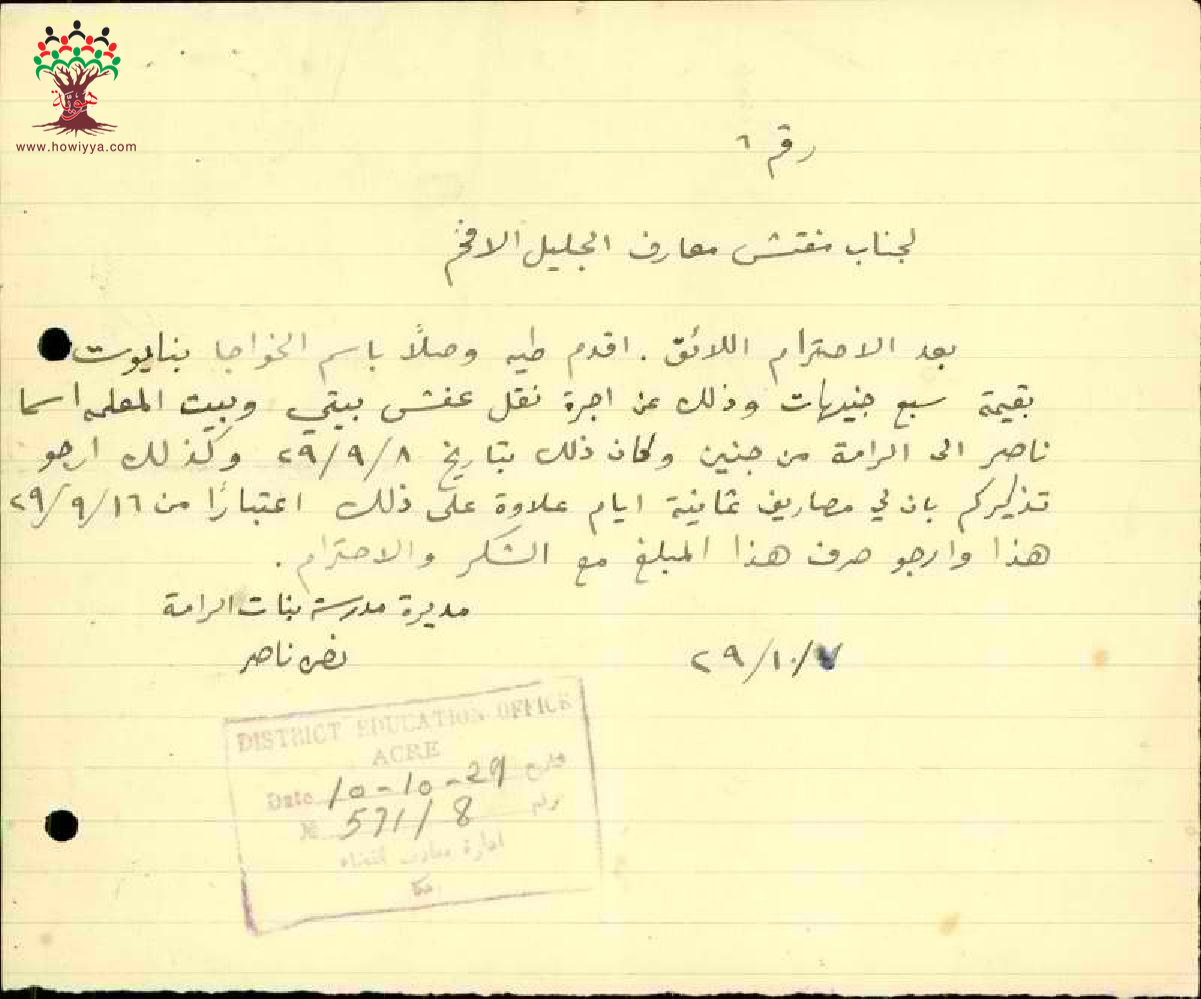 هوية
www.howiyya.com
رقم ٦
لجناب مفتش معارف الجليل الافخم
بعد الاحترام اللائق . اقدم طيه وصلاً باسم الخواجا بنايوت
بقيمة سبع جنيهات وذلك عن اجرة نقل عفش بيتي وبيت المعلمه اسما
ناصر الى الرامة من جنين وكان ذلك بتاريخ ٢٩/٩/٨ وكذلك ارجو
تذكيركم بان لي مصاريف ثمانية ايام علاوة على ذلك اعتبارًا من ٢٩/٩/١٦
هذا وارجو صرف هذا المبلغ مع الشكر والاحترام .
مديرة مدرسة بنات الرامة
ناصر
٢٩/١٠/٧
DISTRICT EDUCATION OFFICE
ACRE
Date 10-10-29 تاريخ
№ 571/8 رقم
ادارة معارف قضاء
عكا